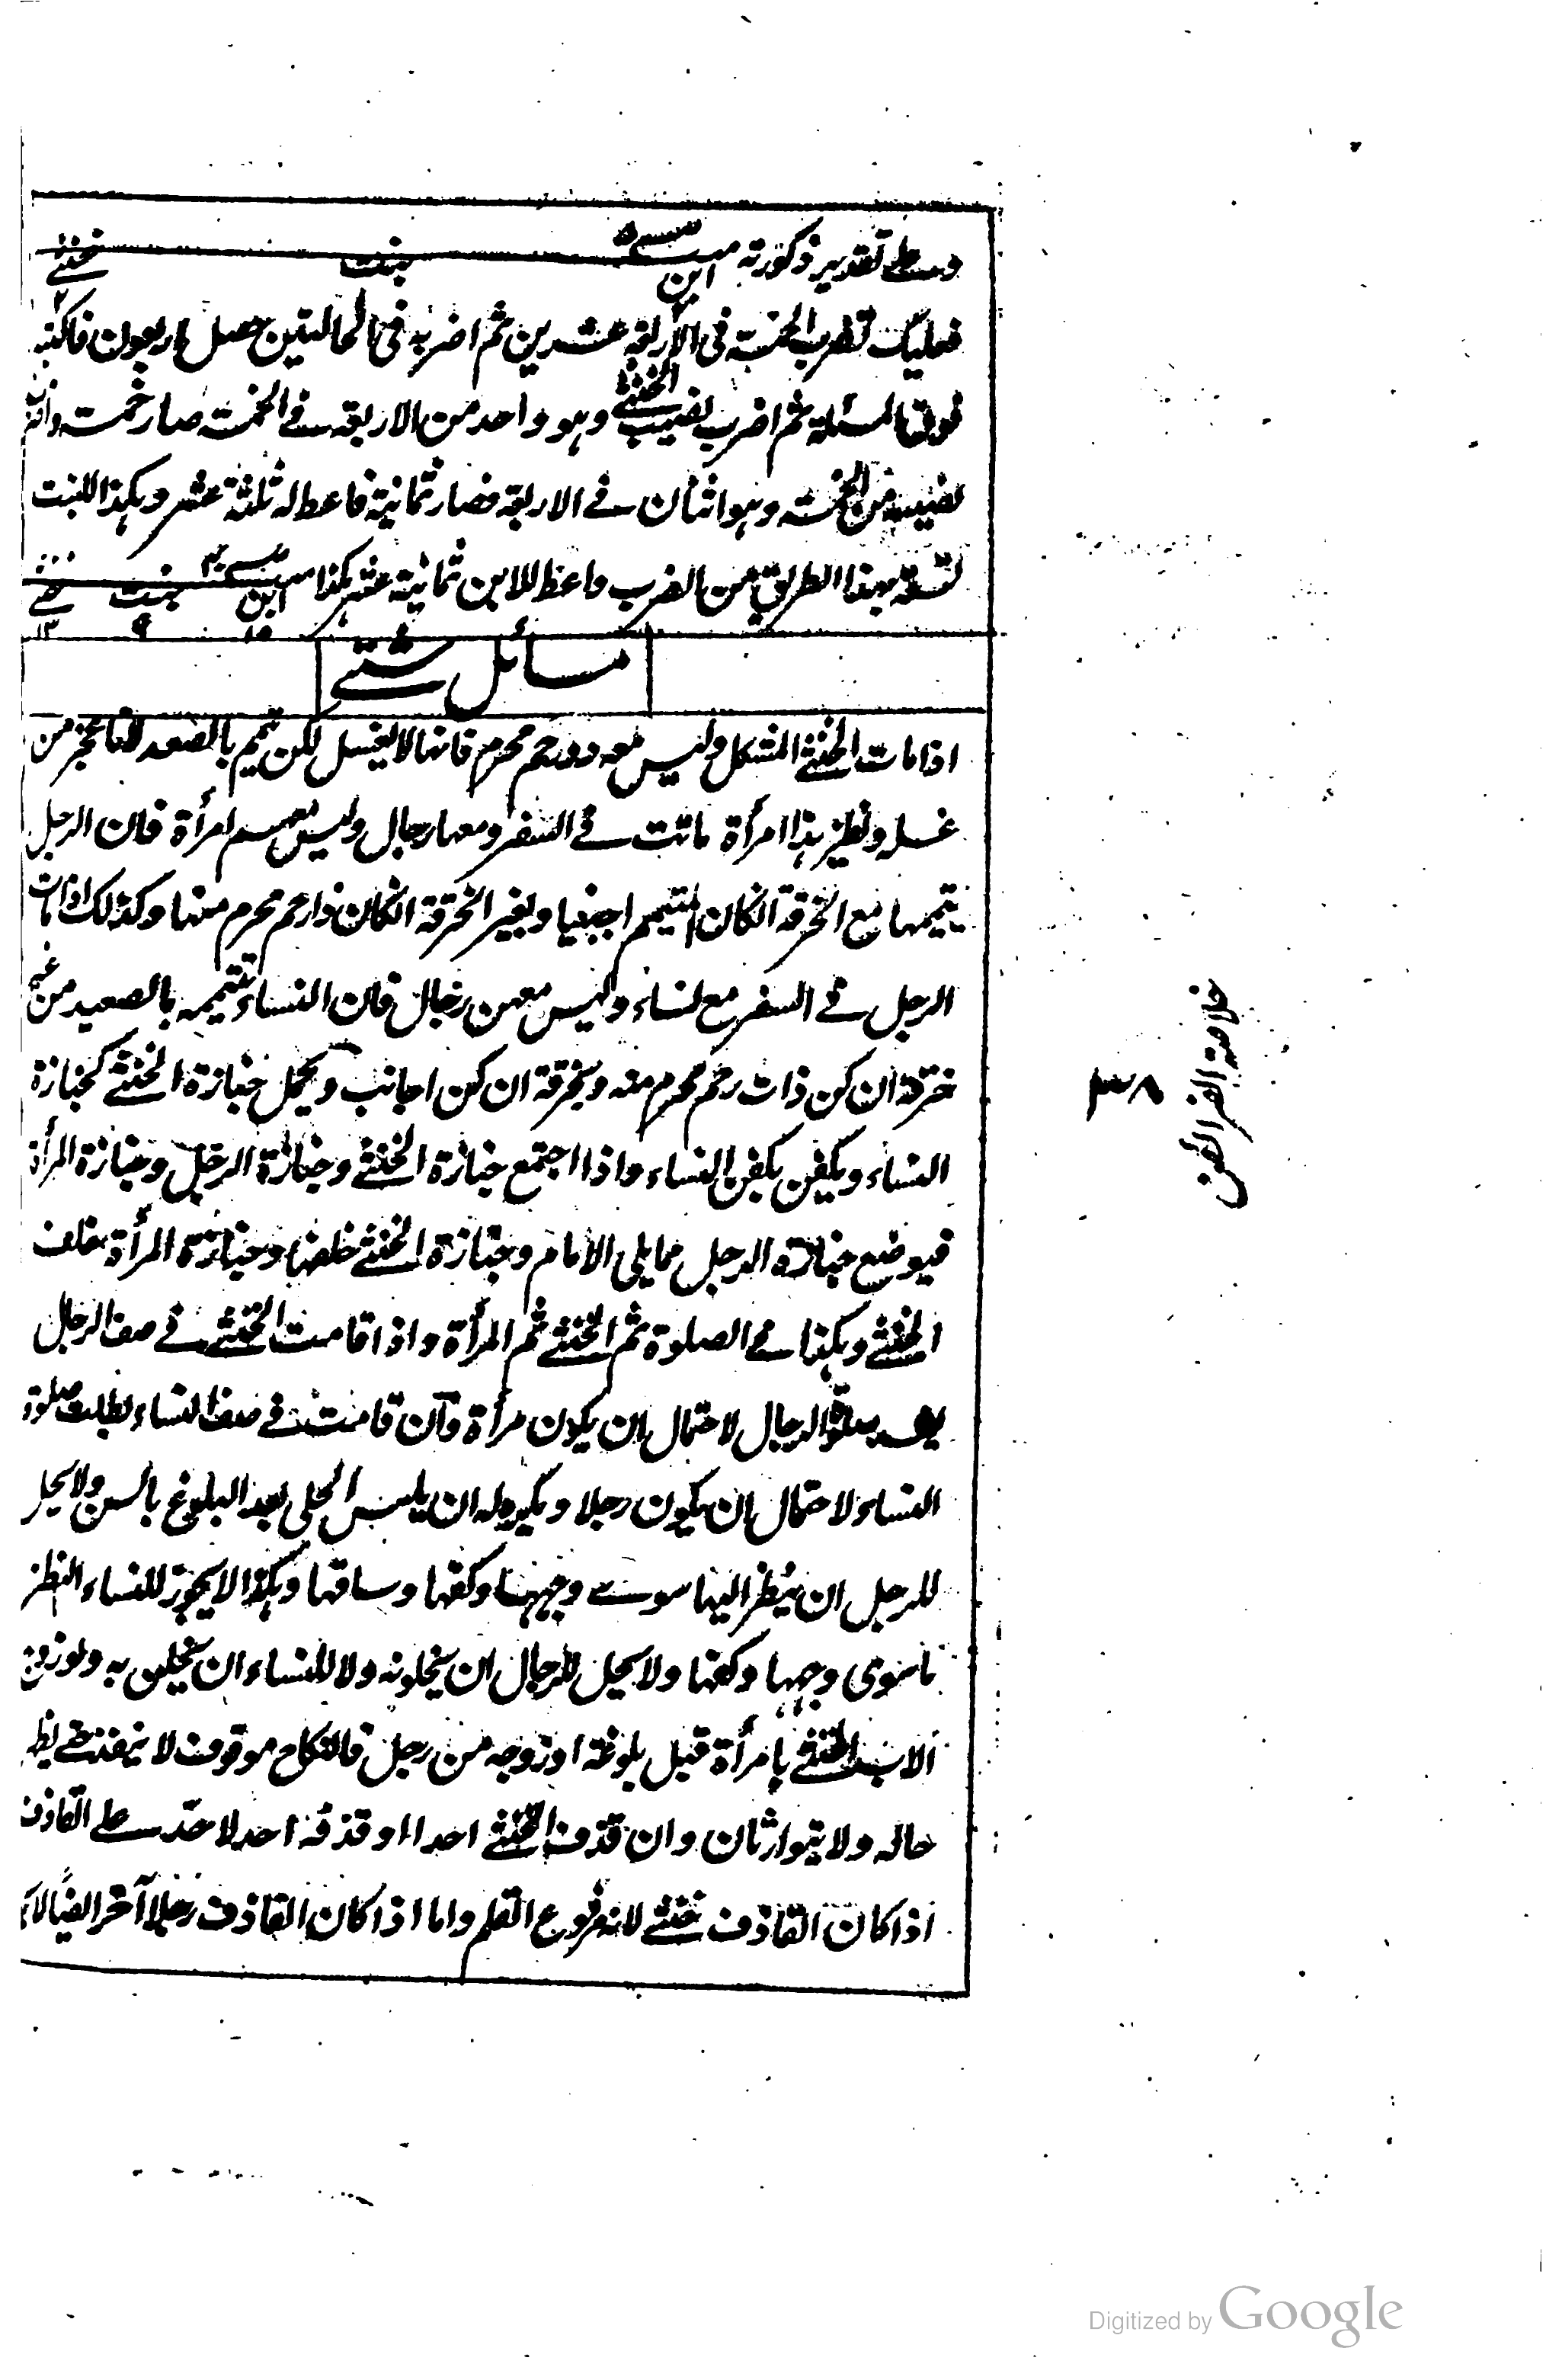 وعلے تقدیر ذکورتہ مسئلہ ۵ ابن بنت خنثے ۲
فعلیک تضرب الخمسة فی الأربعة عشرین ثم اضربہ فی الحالتین حصل اربعون فاکتبہ
فوق المسئلة ثم اضرب نصیب الخنثے وہو واحد من الاربعة فے الخمسة صار خمسة واضرب
نصیبہ من الخمسة وہو اثنان فے الاربعة فصار ثمانیة فاعط لہ ثلثة عشر وہکذا للبنت
تسعة بہذا الطریق من الضرب واعط للابن ثمانیة عشر ہکذا مسئلہ ۴۰ ابن ۱۸ بنت ۹ خنثے ۱۳
مسائل شتے
اذا مات الخنثے المشکل ولیس معہ ذو رحم محرم فانہا لا یغسل لکن تیمم بالصعد لانا عجز من
غسلہ ونظیر ہذا امرأة ماتت فے السفر ومعہا رجال ولیس معہم امرأة فان الرجل
یتیممہا مع الخرقة انکان المتیمم اجنبیا وبغیر الخرقة انکان ذا رحم محرم منہا وکذلک اذا مات
الرجل فے السفر مع نساء ولیس معہن رجال فان النساء تتیممہ بالصعید من غیر
خرقة ان کن ذات رحم محرم منہ وبخرقة ان کن اجانب ویحمل جنازة الخنثے کجنازة
النساء ویکفن بکفن النساء واذا اجتمع جنازة الخنثے وجنازة الرجل وجنازة المرأة
فیوضع جنازة الرجل مما یلی الامام وجنازة الخنثے خلفہا وجنازة المرأة خلف
الخنثے وہکذا فے الصلوة ثم الخنثے ثم المرأة واذا قامت الخنثے فے صف الرجال
صلوة الرجال لاحتمال ان یکون مرأة وآن قامت فے صف النساء بطلت صلوة
النساء لاحتمال ان یکون رجلا ویکرہ لہ ان یلبس الحلی بعد البلوغ بالسن ولا یحل
للرجل ان ینظر الیہا سوے وجہہا وکفہا وساقہا وہکذا لا یجوز للنساء النظر
ما سوی وجہہا وکفہا ولا یحل للرجال ان یخلونہ ولا للنساء ان یخلین بہ ولو زوج
الاب الخنثے بامرأة قبل بلوغہ او زوجہ من رجل فالنکاح موقوف لا ینفذ حتے یظہر
حالہ ولا یتوارثان وان قذف الخنثے احدا او قذفہ احد لا حد علے القاذف
اذا کان القاذف خنثے لانہ مرفوع القلم واما اذا کان القاذف رجلا آخر ایضاً
خلاصة الفرائض
۳۸
Digitized by Google